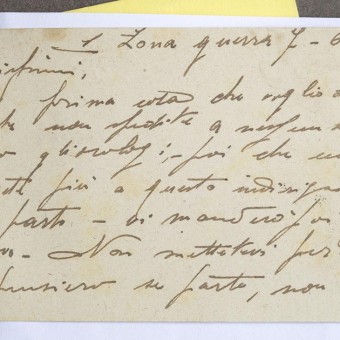 1 Zona guerra 7 - 6
prima cosa che voglio
che non spedite a nessun
gli orologi; - poi che
più a questo indirizzo
parto - vi manderò poi
Non mettetevi per
pensiero se parto, non